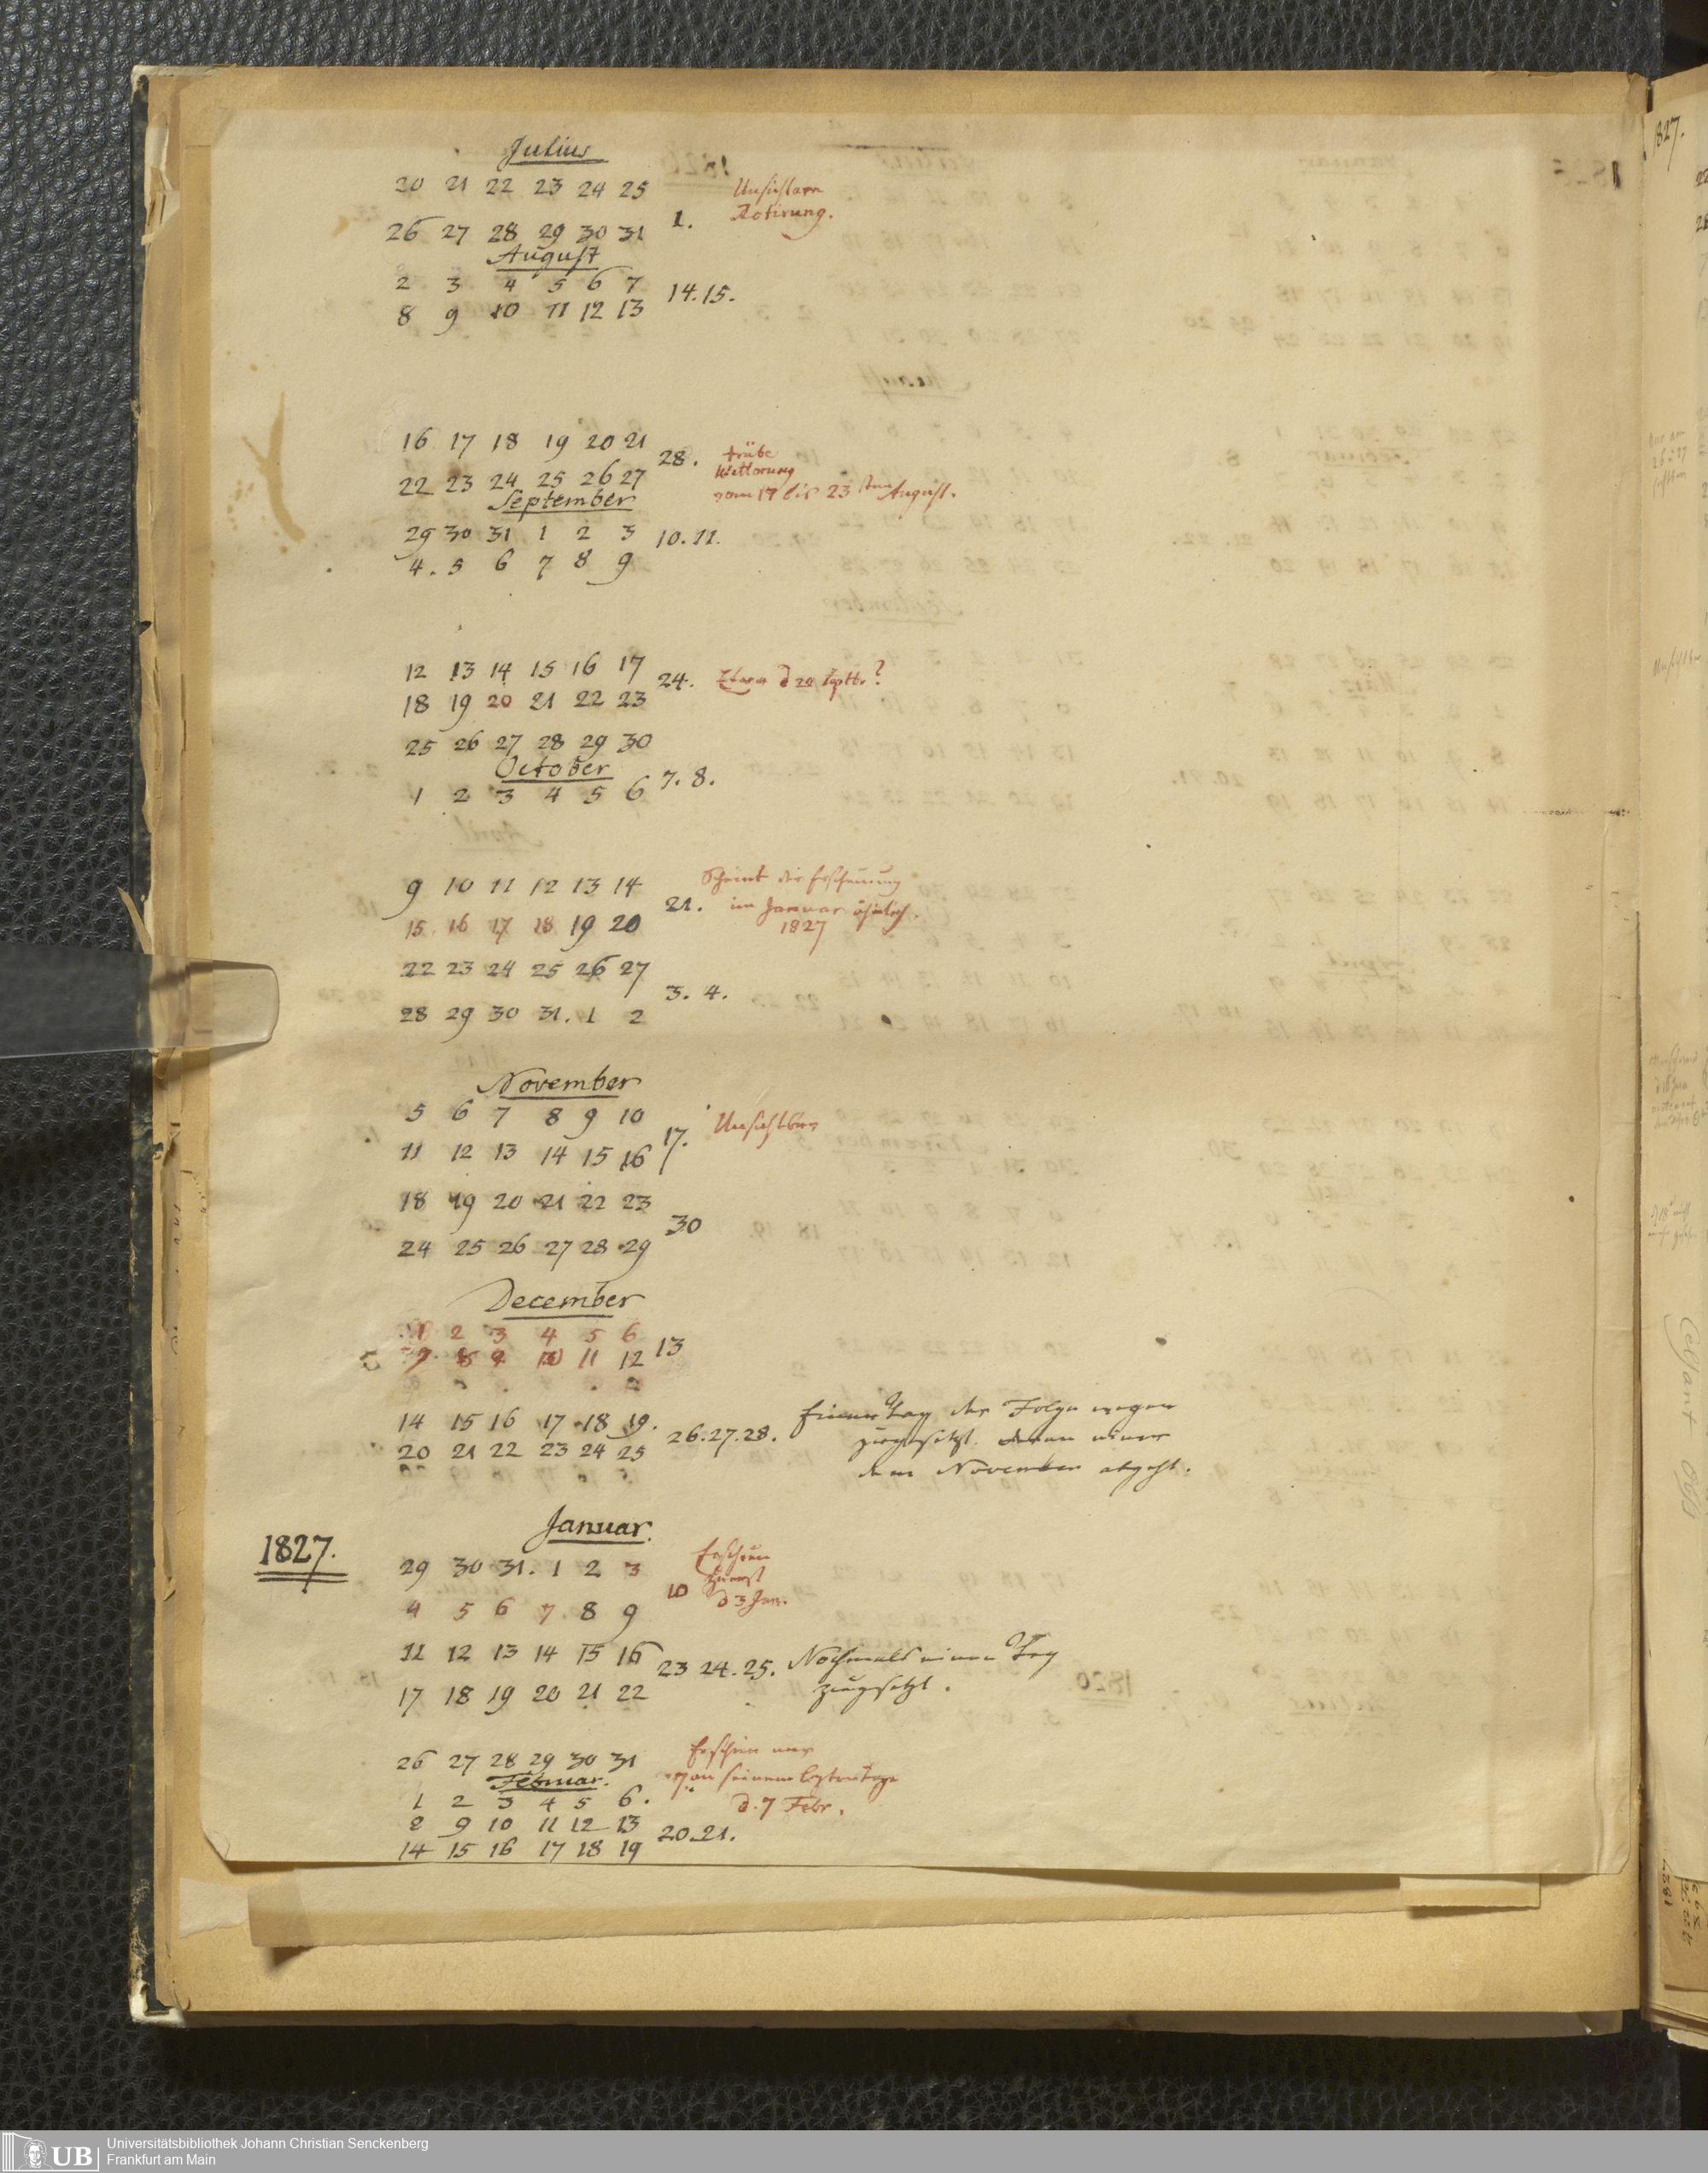 Julius
20 21 22 23 24 25
Unsichtbare
Rotirung.
26 27 28 29 30 31 1.
August
2 3 4 5 6 7
14.15.
8 9 10 11 12 13
16 17 18 19 20 21
28. trübe
Witterung
22 23 24 25 26 27
vom 17 bis 23 sten August.
September
29 30 31 1 2 3 10.11.
4. 5 6 7 8 9
12 13 14 15 16 17
24. Etwa d 20 Sptbr?
18 19 20 21 22 23
25 26 27 28 29 30
October
7. 8.
1 2 3 4 5 6
Scheint die Erscheinung
9 10 11 12 13 14
21. im Januar ähnlich.
1827
15 16 17 18 19 20
22 23 24 25 26 27
3. 4.
28 29 30 31. 1 2
November
5 6 7 8 9 10
17. Unsichtbar
11 12 13 14 15 16
18 19 20 21 22 23
30
24 25 26 27 28 29
December
1 2 3 4 5 6
13
7 8 9 10 11 12
14 15 16 17 18 19.
26.27.28.
20 21 22 23 24 25
Einen Tag der Folge wegen
zugesetzt. denn einer
dem November abgeht.
Januar.
1827.
29 30 31. 1 2 3
Erschien
zuerst
10 d 3 Jan.
4 5 6 7 8 9
11 12 13 14 15 16
23 24.25. Nochmals einen Tag
zugesetzt.
17 18 19 20 21 22
26 27 28 29 30 31
Erschien nur
Februar.
an seinem letzten Tage
1 2 3 4 5 6. 7
d. 7 Febr.
8 9 10 11 12 13
20.21.
14 15 16 17 18 19
1827.
UB
Universitätsbibliothek Johann Christian Senckenberg
Frankfurt am Main